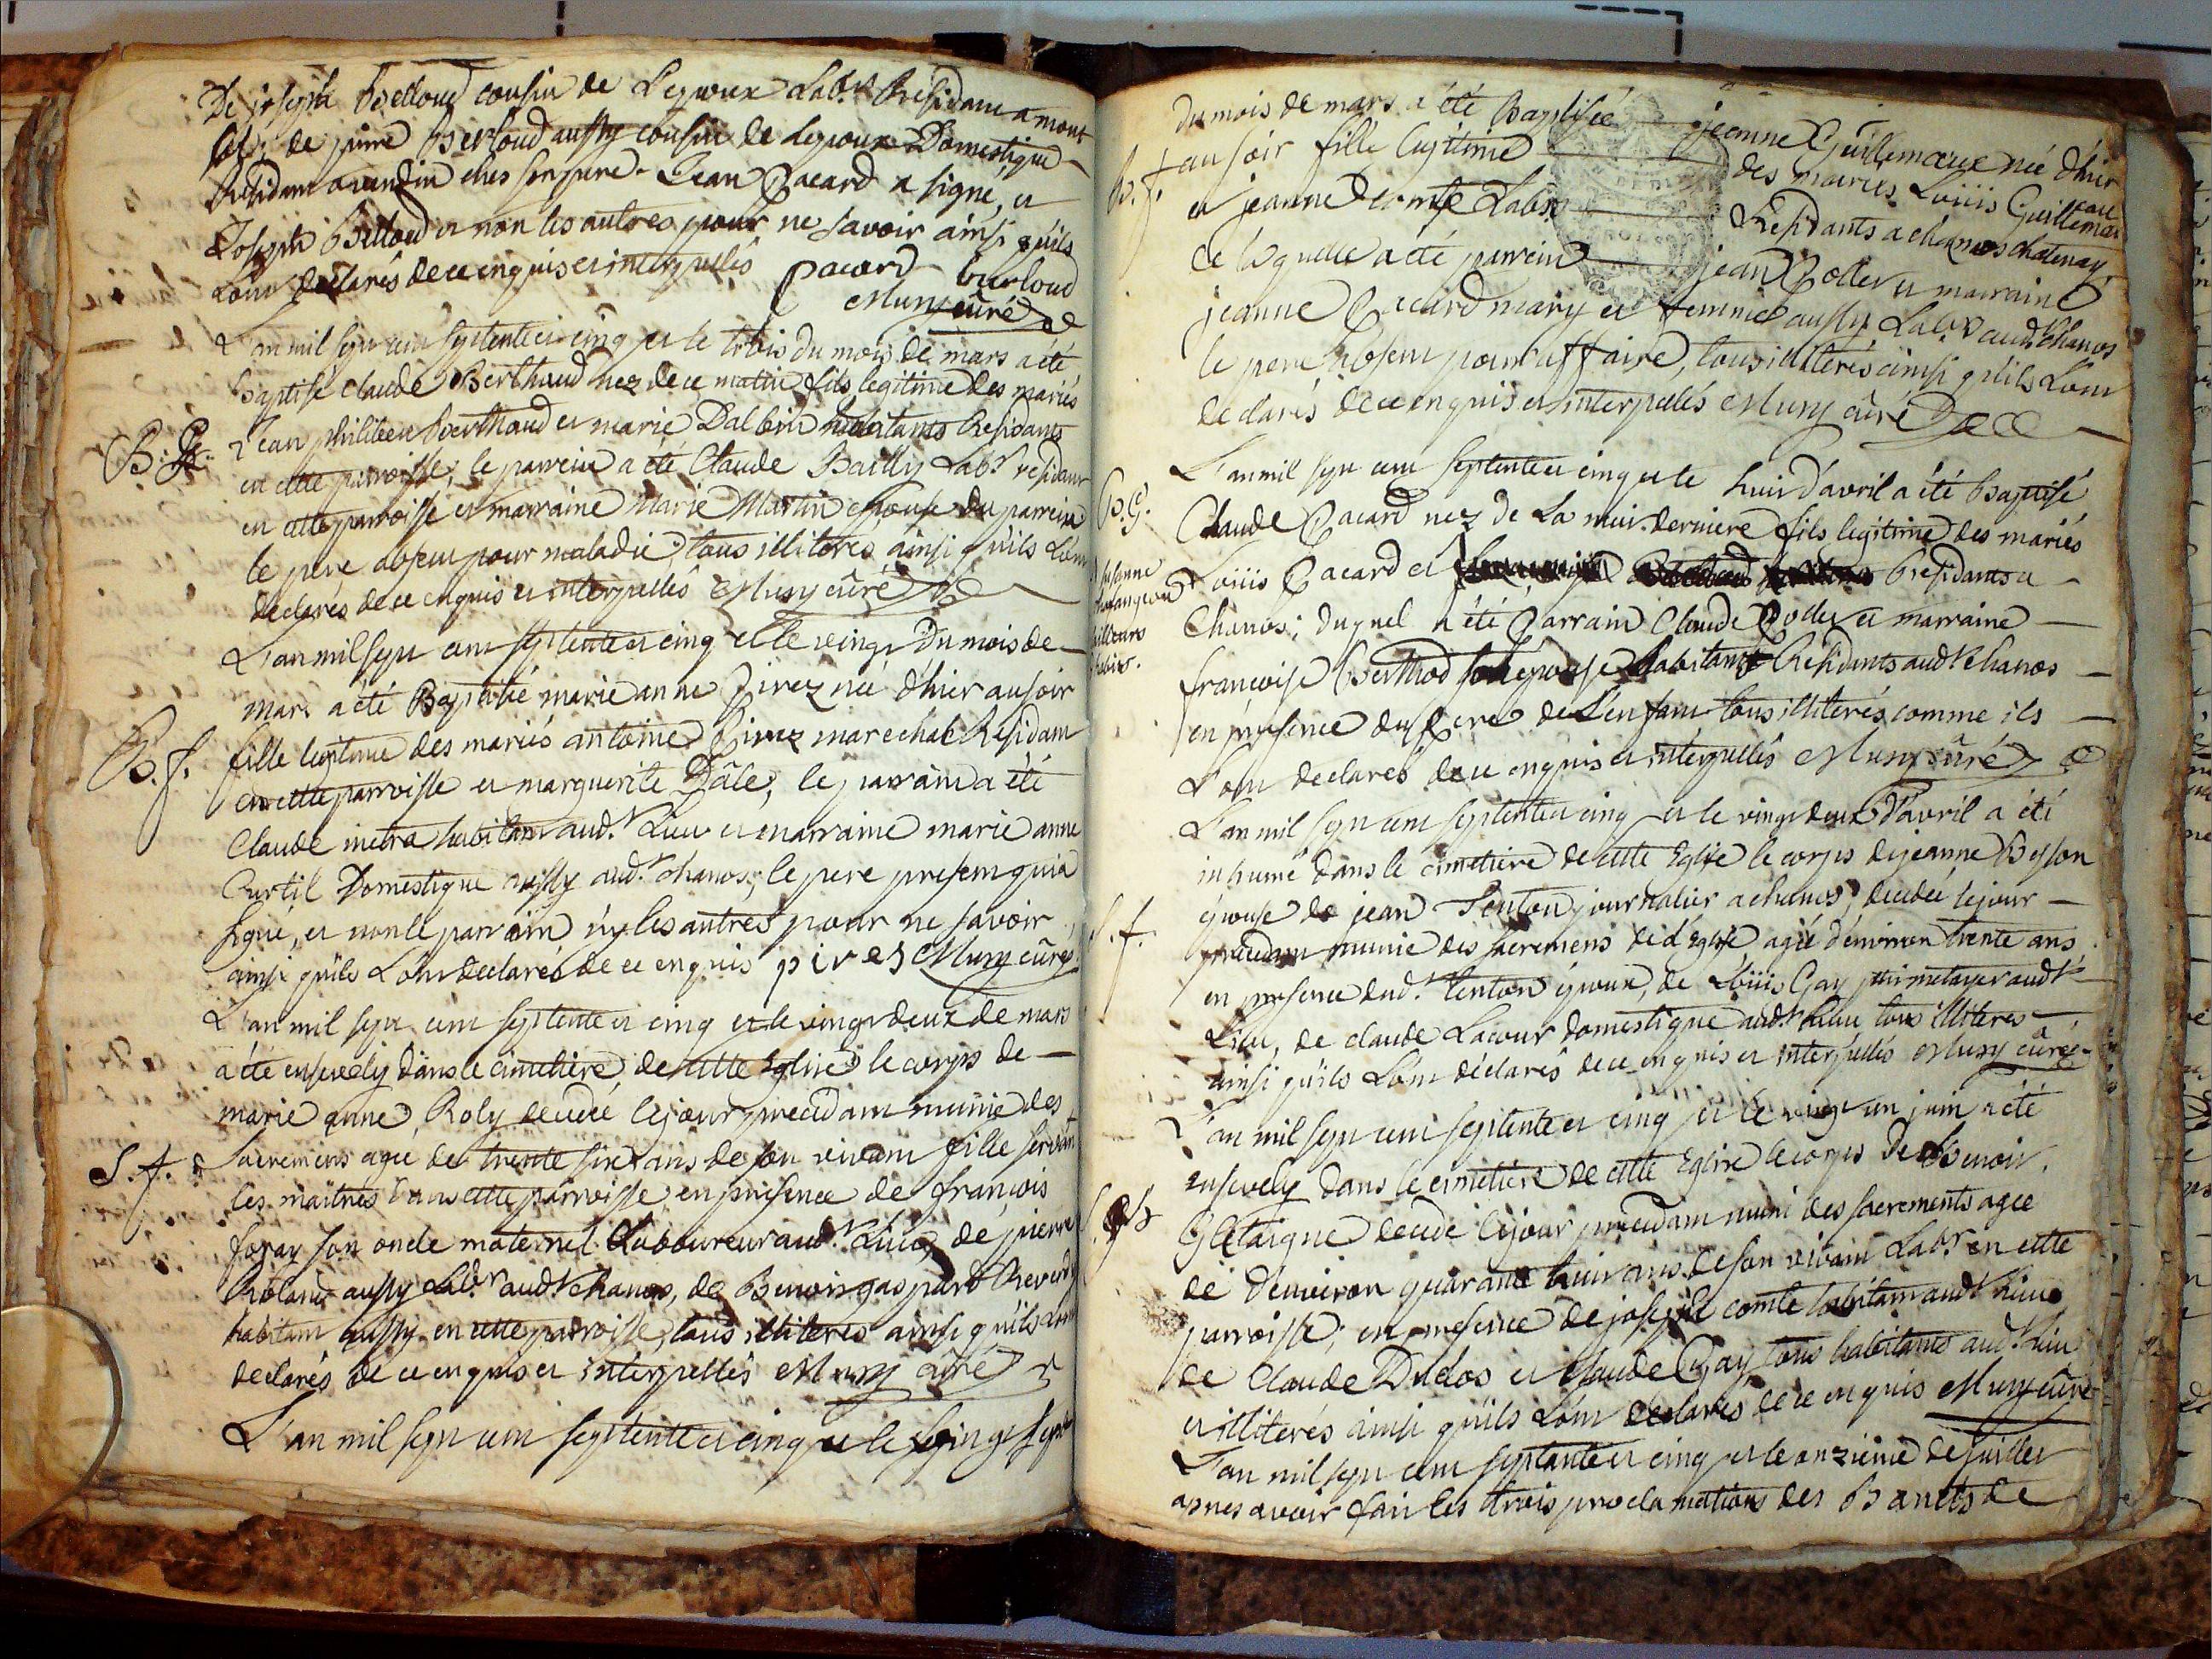 De joseph Berloud cousin de Lepoux Labr. Residant a mont
de pierre Berloud aussy cousin de Lepoux Domestique
Residant a vandin ches son pere. Jean Pacard a signé, et
Joseph Berloud et non les autres pour ne savoir ainsi qu'ils
L'ont declarés de ce enquis et interpellés Pacard burloud
Muny curé
L'an mil sept cent septente et cinq et le trois du mois de mars a été
Baptisé Claude Berthaud nez de ce matin fils legitime des mariés
Jean philibert Berthaud et marie Dalbin habitants Residants
en cette parroisse, le parrein a été Claude Bailly Labr. residant
en cette parroisse et marraine Marie Martin epouse du parrein
le pere absent pour maladie; tous illiterés ainsi qu'ils L'ont
declarés de ce enquis et interpellés Muny curé
B. G.
L'an mil sept cent septente et cinq et le vingt du mois de
mars a été Baptisé marie anne Pirez née d'hier au soir
fille legitime des mariés antoine Pirez marechal Residant
en cette parroisse et marguerite Dâle, le parrain a été
B. f.
Claude metra habitant aud. Lieu et marraine marie anne
Curtil Domestique aussy aud. chanos, le pere present qui a
signé, et non le parrain ny les autres pour ne savoir
ainsi qu'ils L'ont declarés de ce enquis pires Muny curé
L'an mil sept cent septente et cinq et le vingt deux de mars
a été ensevely dans le cimetière de cette Eglise le corps de
marie anne Roly decedée le jour precedant munie des
Sacremens agée de trente six ans de son vivant fille servant
S. f.
les maitres dans cette parroisse, en presence de francois
foray son oncle maternel Laboureur aud. Lieu, de pierre
Roland aussy Labr. aud. chanos, de Benoit gaspard Reverdy
habitant aussy en cette parroisse, tous illiterés ainsi qu'ils ont
declarés de ce enquis et interpellés Muny curé
L'an mil sept cent septente et cinq et le vingt sept
du mois de mars a été Baptisée jeanne Guillemaux née d'hier
au soir fille legitime des mariés Loüis Guillemau
B. f.
et jeanne Comte Labrs Residants a chanos chatenay,
de laquelle a été parrein jean Roller et marraine
jeanne Pacard mary et femme aussy Labr. aud. Chanos
le pere absent pour affaire, tous illiterés ainsi qu'ils L'ont
declarés de ce enquis et interpellés Muny curé
L'an mil sept cent septente et cinq et le huit d'avril a été Baptisé
B. G.
Claude Pacard nez de La nuit derniere fils legitime des mariés
Loüis Pacard et Residants a
Chanos; duquel a été Parrain Claude Roller et marraine
francoise Berthod son epouse habitants Residants aud. Chanos
en presence du Pere de L'enfant tous illiterés, comme ils
L'ont declarés de ce enquis et interpellés Muny curé
L'an mil sept cent septente et cinq et le vingt deux d'avril a été
inhumé dans le cimetière de cette Eglise le corps de jeanne Besson
epouse de jean Tenton journalier a chanos, decedée le jour
S. f.
precedant munie des sacremens de l'Eglise agée d'environ trente ans
en presence dud. Tenton epoux, de Loüis Gay metayer aud.
Lieu, de claude Lacour domestique aud. Lieu tous illiterés
ainsi qu'ils L'ont déclarés de ce enquis et interpellés Muny curé
L'an mil sept cent septente et cinq et le vingt un juin a été
ensevely dans le cimetière de cette Eglise le corps de Benoit
Gletaigne decedé le jour precedant muni des sacrements agée
de d'environ quarante huit ans de son vivant Labr. en cette
parroisse; en presence de joseph comte habitant aud. Lieu
de Claude Duclos et Claude Gay, tous habitants aud. Lieu
et illiterés ainsi qu'ils L'ont declarés de ce enquis Muny curé
L'an mil sept cent septante et cinq et le onzieme de juillet
apres avoir fait les trois proclamations des Bancts de